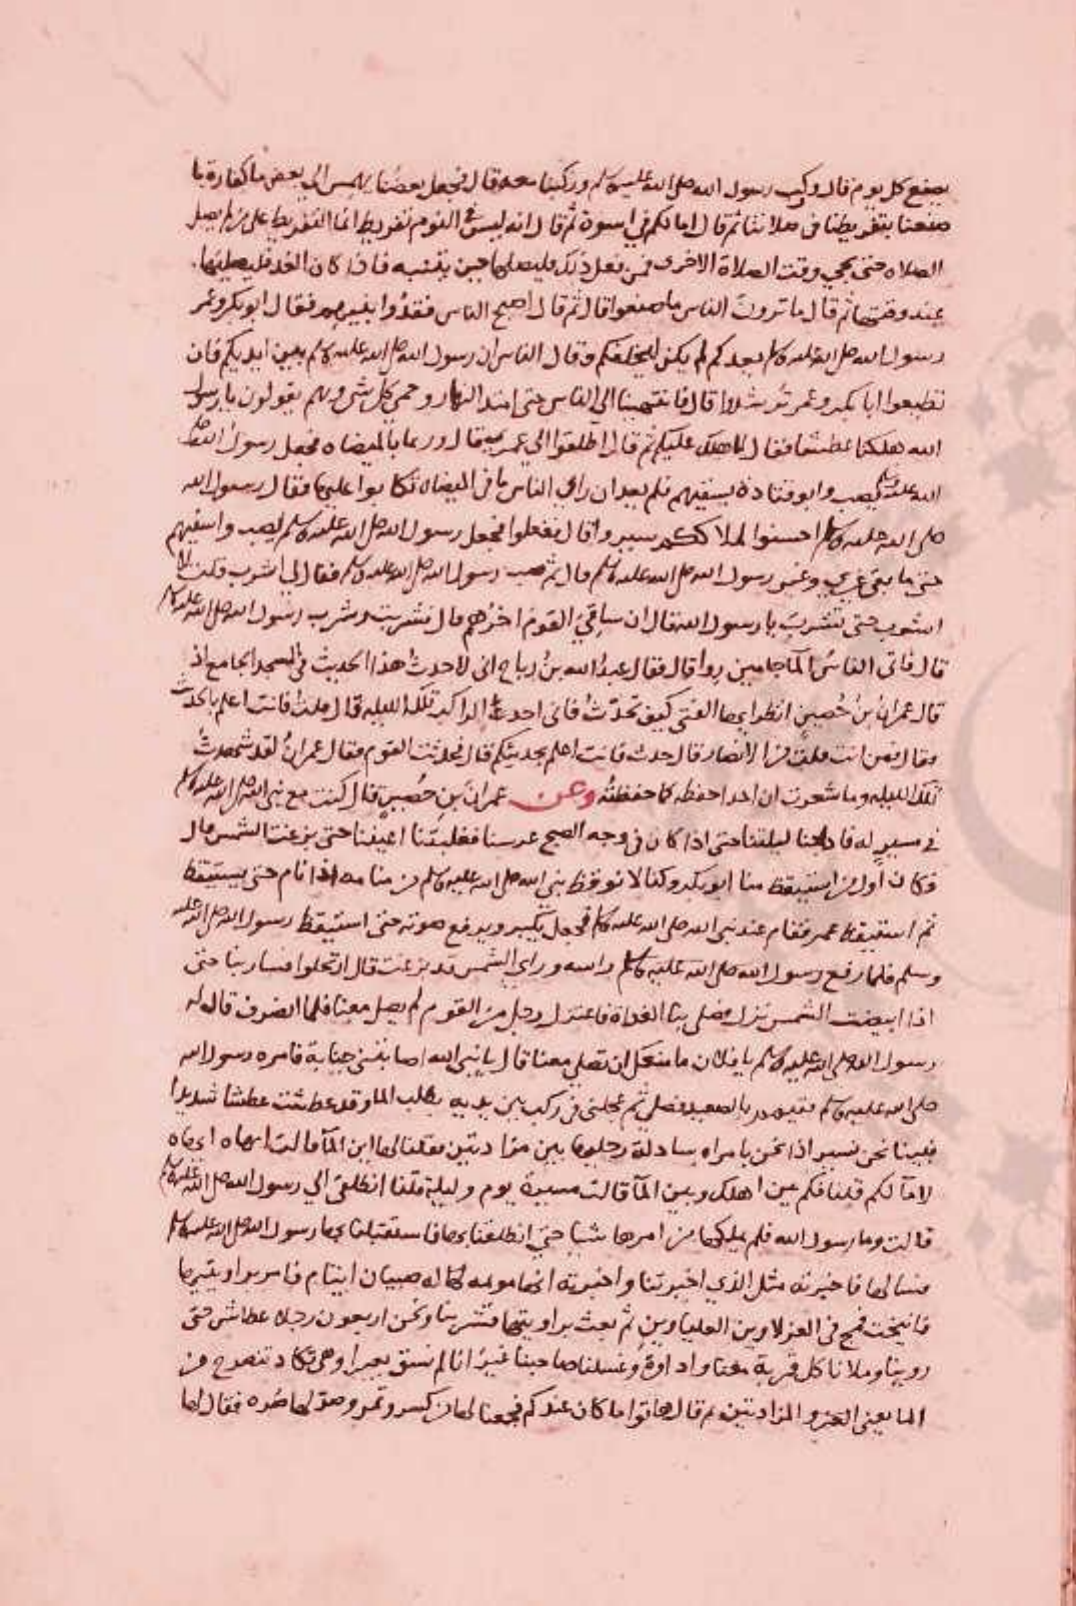 يصنع كل يوم قال وركب رسول الله صلى الله عليه وسلم وركبنا معه قال فجعل بعضنا يهمس الى بعض ما كفارة ما
صنعنا بتفريطنا في صلاتنا ثم قال اما لكم في اسوة ثم قال انه ليس في النوم تفريط انما التفريط على من لم يصل
الصلاة حتى يجي وقت الصلاة الاخرى فمن فعل ذلك فليصلها حين ينتبه فاذا كان الغد فليصليها
عند وقتها ثم قال ما ترون الناس ما صنعوا قال ثم قال اصبح الناس فقدوا نبيهم فقال ابو بكر وعمر
رسول الله صلى الله عليه وسلم بعدكم لم يكن ليخلفكم وقال الناس ان رسول الله صلى الله عليه وسلم بين ايديكم فان
تطيعوا ابا بكر وعمر ترشدوا قال فانتهينا الى الناس حتى امتد النهار وحمي كل شي وهم يقولون يا رسول
الله هلكنا عطشا فقال لا هلك عليكم ثم قال اطلقوا الي غمري قال ودعا بالميضاه فجعل رسول الله صلى
الله عليه وسلم يصب وابو قتادة يسقيهم فلم يعد ان راى الناس ما في الميضاه تكابوا عليها فقال رسول الله
صلى الله عليه وسلم احسنوا الملا كلكم سيروا قال ففعلوا فجعل رسول الله صلى الله عليه وسلم يصب واسقيهم
حتى ما بقى غيري وغير رسول الله صلى الله عليه وسلم قال ثم صب رسول الله صلى الله عليه وسلم فقال لي اشرب فقلت لا
اشرب حتى تشرب يا رسول الله فقال ان ساقي القوم اخرهم قال فشربت وشرب رسول الله صلى الله عليه وسلم
قال فاتى الناس الماء جامين رواء قال فقال عبد الله بن رباح انى لاحدث هذا الحديث في المسجد الجامع اذ
قال عمران بن حصين انظر ايها الفتى كيف تحدث فانى احد الراكب تلك الليله قال قلت فانت اعلم بالحديث
فقال ممن انت قلت من الانصار قال حدث فانت اعلم بحديثكم قال فحدثت القوم فقال عمران لقد شهدت
تلك الليله وما شعرت ان احدا حفظه كما حفظته وعن عمران بن حصين قال كنت مع نبى الله صلى الله عليه وسلم
في مسير له فادلجنا ليلتنا حتى اذا كان في وجه الصبح عرسنا فغلبتنا اعيننا حتى بزغت الشمس قال
فكان اول من استيقظ منا ابو بكر وكنا لا نوقظ نبى الله صلى الله عليه وسلم من منامه اذا نام حتى يستيقظ
ثم استيقظ عمر فقام عند نبى الله صلى الله عليه وسلم فجعل يكبر ويرفع صوته حتى استيقظ رسول الله صلى الله عليه
وسلم فلما رفع رسول الله صلى الله عليه وسلم راسه وراى الشمس قد بزغت قال ارتحلوا فسار بنا حتى
اذا ابيضت الشمس نزل فصلى بنا الغداة فاعتزل رجل من القوم لم يصل معنا فلما انصرف قال له
رسول الله صلى الله عليه وسلم يا فلان ما منعك ان تصلي معنا قال يا نبى الله اصابتنى جنابة فامره رسول الله
صلى الله عليه وسلم فتيمم بالصعيد فصلى ثم عجلنى في ركب بين يديه نطلب الما وقد عطشنا عطشا شديدا
فبينا نحن نسير اذا نحن بامراه سادلة رجليها بين مزادتين فقلنا لها اين الماء قالت ايهاه ايهاه
لا ماء لكم قلنا فكم بين اهلك وبين الماء قالت مسيرة يوم وليلة قلنا انطلقى الي رسول الله صلى الله عليه وسلم
قالت وما رسول الله فلم نملكها من امرها شيا حتى انطلقنا بها فاستقبلنا بها رسول الله صلى الله عليه وسلم
فسالها فاخبرته مثل الذي اخبرتنا واخبرته انها موتمه لها صبيان ايتام فامر براويتها
فانيخت فمج في العزلاوين العلياوين ثم بعث براويتها فشربنا ونحن اربعون رجلا عطاش حتى
روينا وملانا كل قربة معنا واداوة وغسلنا صاحبنا غير انا لم نسق بعيرا وهى تكاد تنضرج من
الما يعنى المزادتين ثم قال هاتوا ما كان عندكم فجمعنا لها من كسر وتمر وصر لها صره فقال لها